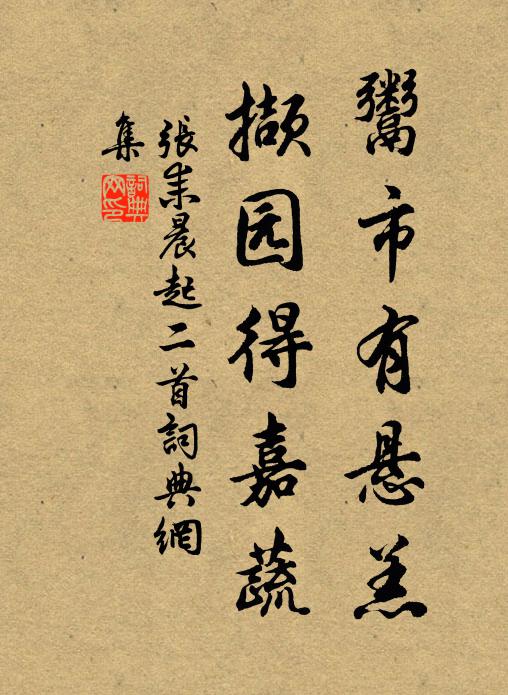 鬻市有悬羔
撷园得嘉蔬
張耒晨起二首詞典網
集
詞典网印